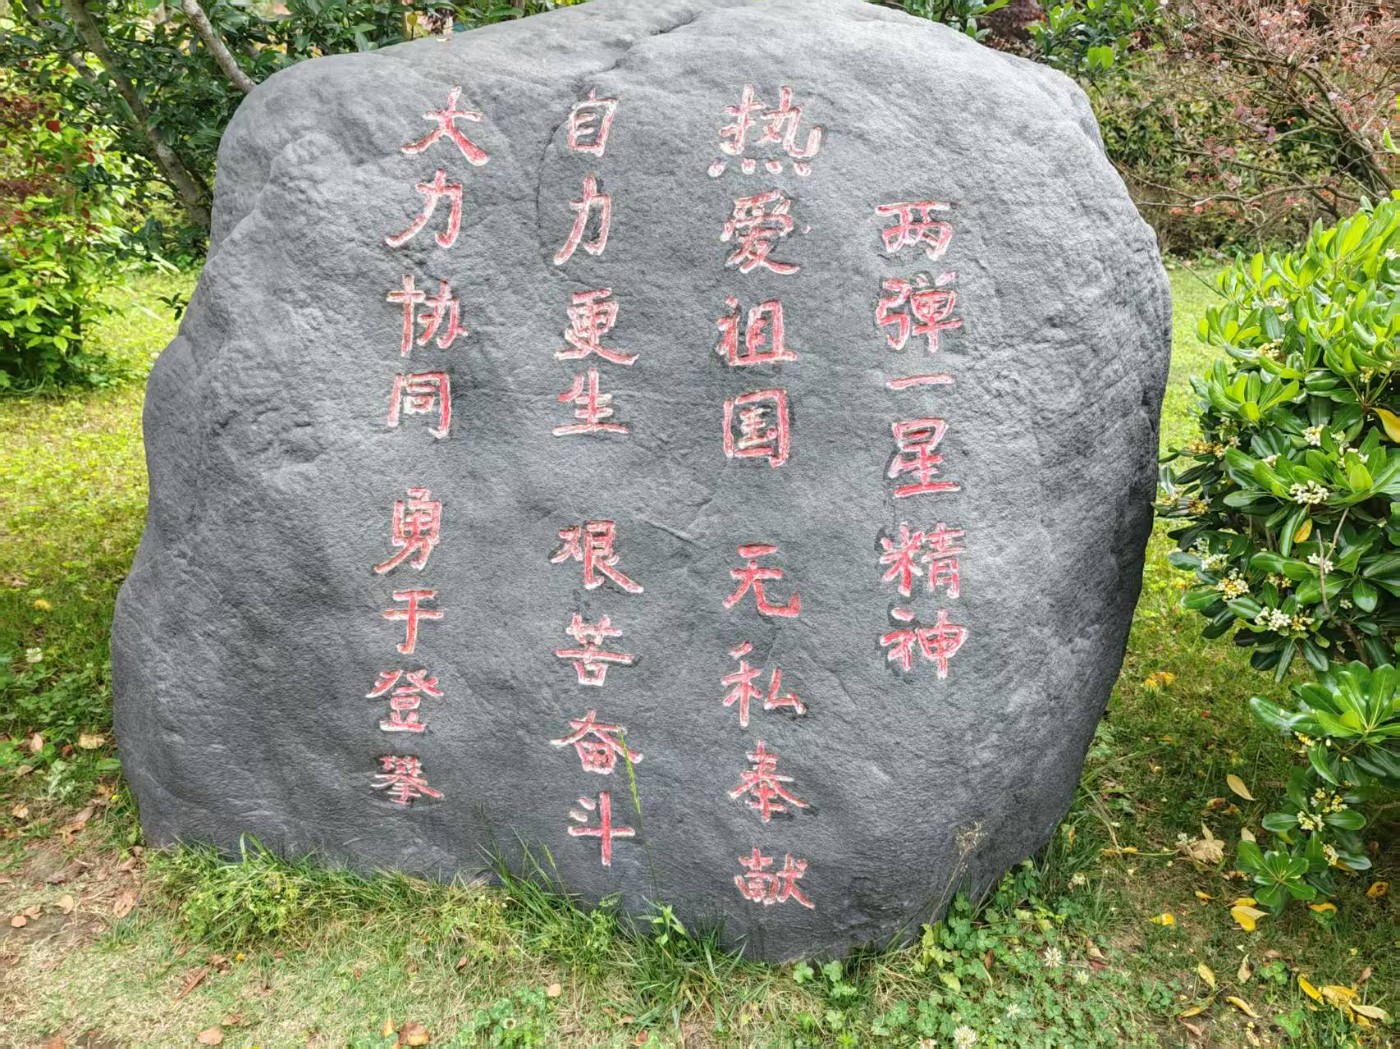 两弹一星精神
热爱祖国 无私奉献
自力更生 艰苦奋斗
大力协同 勇于登攀